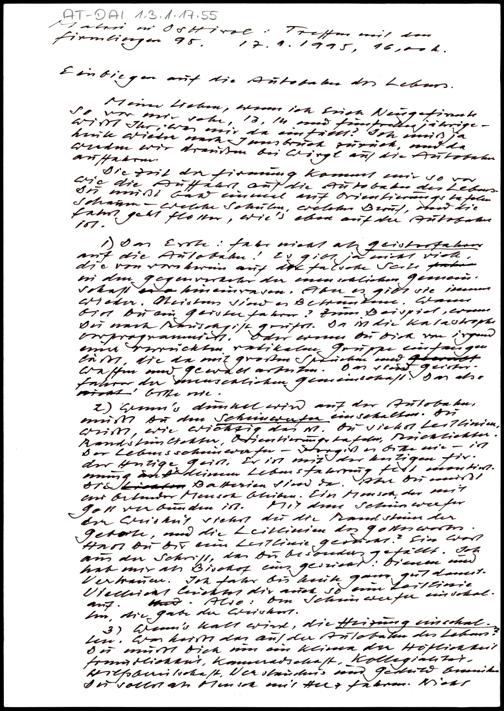 AT-DAI 1.3.1.17.55
Matrei in Osttirol: Treffen mit den
Firmlingen 95. 17.9.1995, 16,00h.
Einbiegen auf die Autobahn des Lebens.
Meine Lieben, wenn ich Euch Neugefirmte
so vor mir sehe, 13, 14 und fünfzehnjährige -
wißt Ihr, was mir da einfällt? Ich muß ja
heute wieder nach Innsbruck zurück, und da
werden wir draußen bei Wörgl auf die Autobahn
auffahren.
Die Zeit der Firmung kommt mir so vor
wie die Auffahrt auf die Autobahn des Lebens.
Du mußt bald einmal auf Orientierungstafeln
schauen - welche Schule, welcher Beruf, und die
Fahrt geht flotter, wie's eben auf der Autobahn
ist.
1) Das Erste: fahr nicht als Geisterfahrer
auf die Autobahn! Es gibt ja nicht viele
die von vornherein auf der falschen Seite
in den Gegenverkehr der menschlichen Gemein-
schaft hineinrasen. Aber es gibt sie immer
wieder. Meistens sind es Betrunkene. Wann
bist Du ein Geisterfahrer? Zum Beispiel, wenn
Du nach Rauschgift greifst. Da ist die Katastrophe
vorprogrammiert. Oder wenn Du Dich von irgend
einer verrückten radikalen Gruppe einfangen
läßt, die da mit großen Sprüchen und
Waffen und Gewalt arbeiten. Das sind Geister-
fahrer der menschlichen Gemeinschaft. Das also
bitte nie.
2) Wenn's dunkel wird auf der Autobahn,
mußt Du den Scheinwerfer einschalten. Du
weißt, wie wichtig das ist. Du siehst Leitlinien,
Randstreifen, Orientierungstafeln, Rücklichter.
Der Lebensscheinwerfer - die Batterie - ist
der Heilige Geist. Er ist mit der heutigen Fir-
mung an deinem Lebensfahrzeug fest montiert.
Die Batterien sind da. Aber Du mußt
ein betender Mensch bleiben. Ein Mensch, der mit
Gott verbunden ist. Mit dem Scheinwerfer
der Weisheit siehst du die Randsteine der
Gebote, und die Leitlinien des Gotteswortes.
Hast Du Dir eine Leitlinie gesucht? Ein Wort
aus der Schrift, das Dir besonders gefällt. Ich
hab mir als Bischof eins gesucht: Dienen und
Vertrauen. Ich fahr bis heute ganz gut damit.
Vielleicht leuchtet dir auch so eine Leitlinie
auf. Also: Den Scheinwerfer einschal-
ten, die Gabe der Weisheit.
3) Wenn's kalt wird, die Heizung einschal-
ten. Was heißt das auf der Autobahn des Lebens?
Du mußt Dich um ein Klima der Höflichkeit
Freundlichkeit, Kameradschaft, Kollegialität,
Hilfsbereitschaft, Verständnis und Geduld bemühen
Du sollst als Mensch mit Herz fahren. Nicht